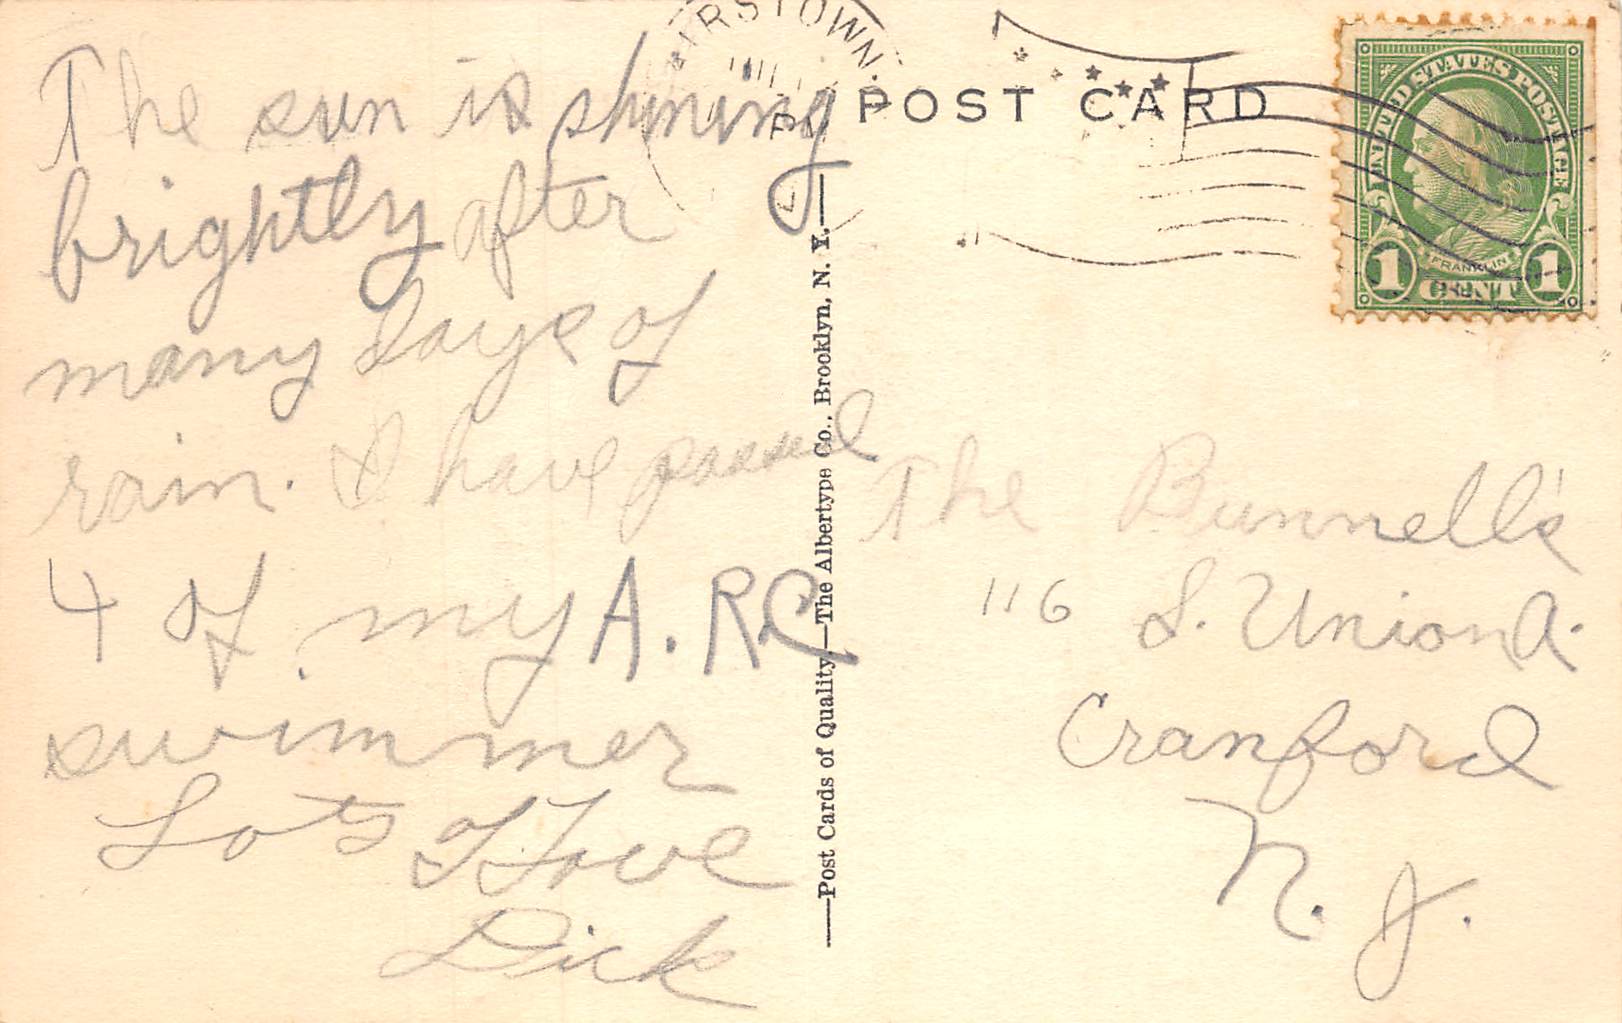 The sun is shining
brightly after
many days of
rain. I have passed
4 of my A.RC
swimmer
Lots of Love
Dick
POST CARD
—Post Cards of Quality—The Albertype Co., Brooklyn, N. Y.—
UNITED STATES POSTAGE
FRANKLIN
1 CENT 1
The Bunnell's
116 S. Union A.
Cranford
N. J.